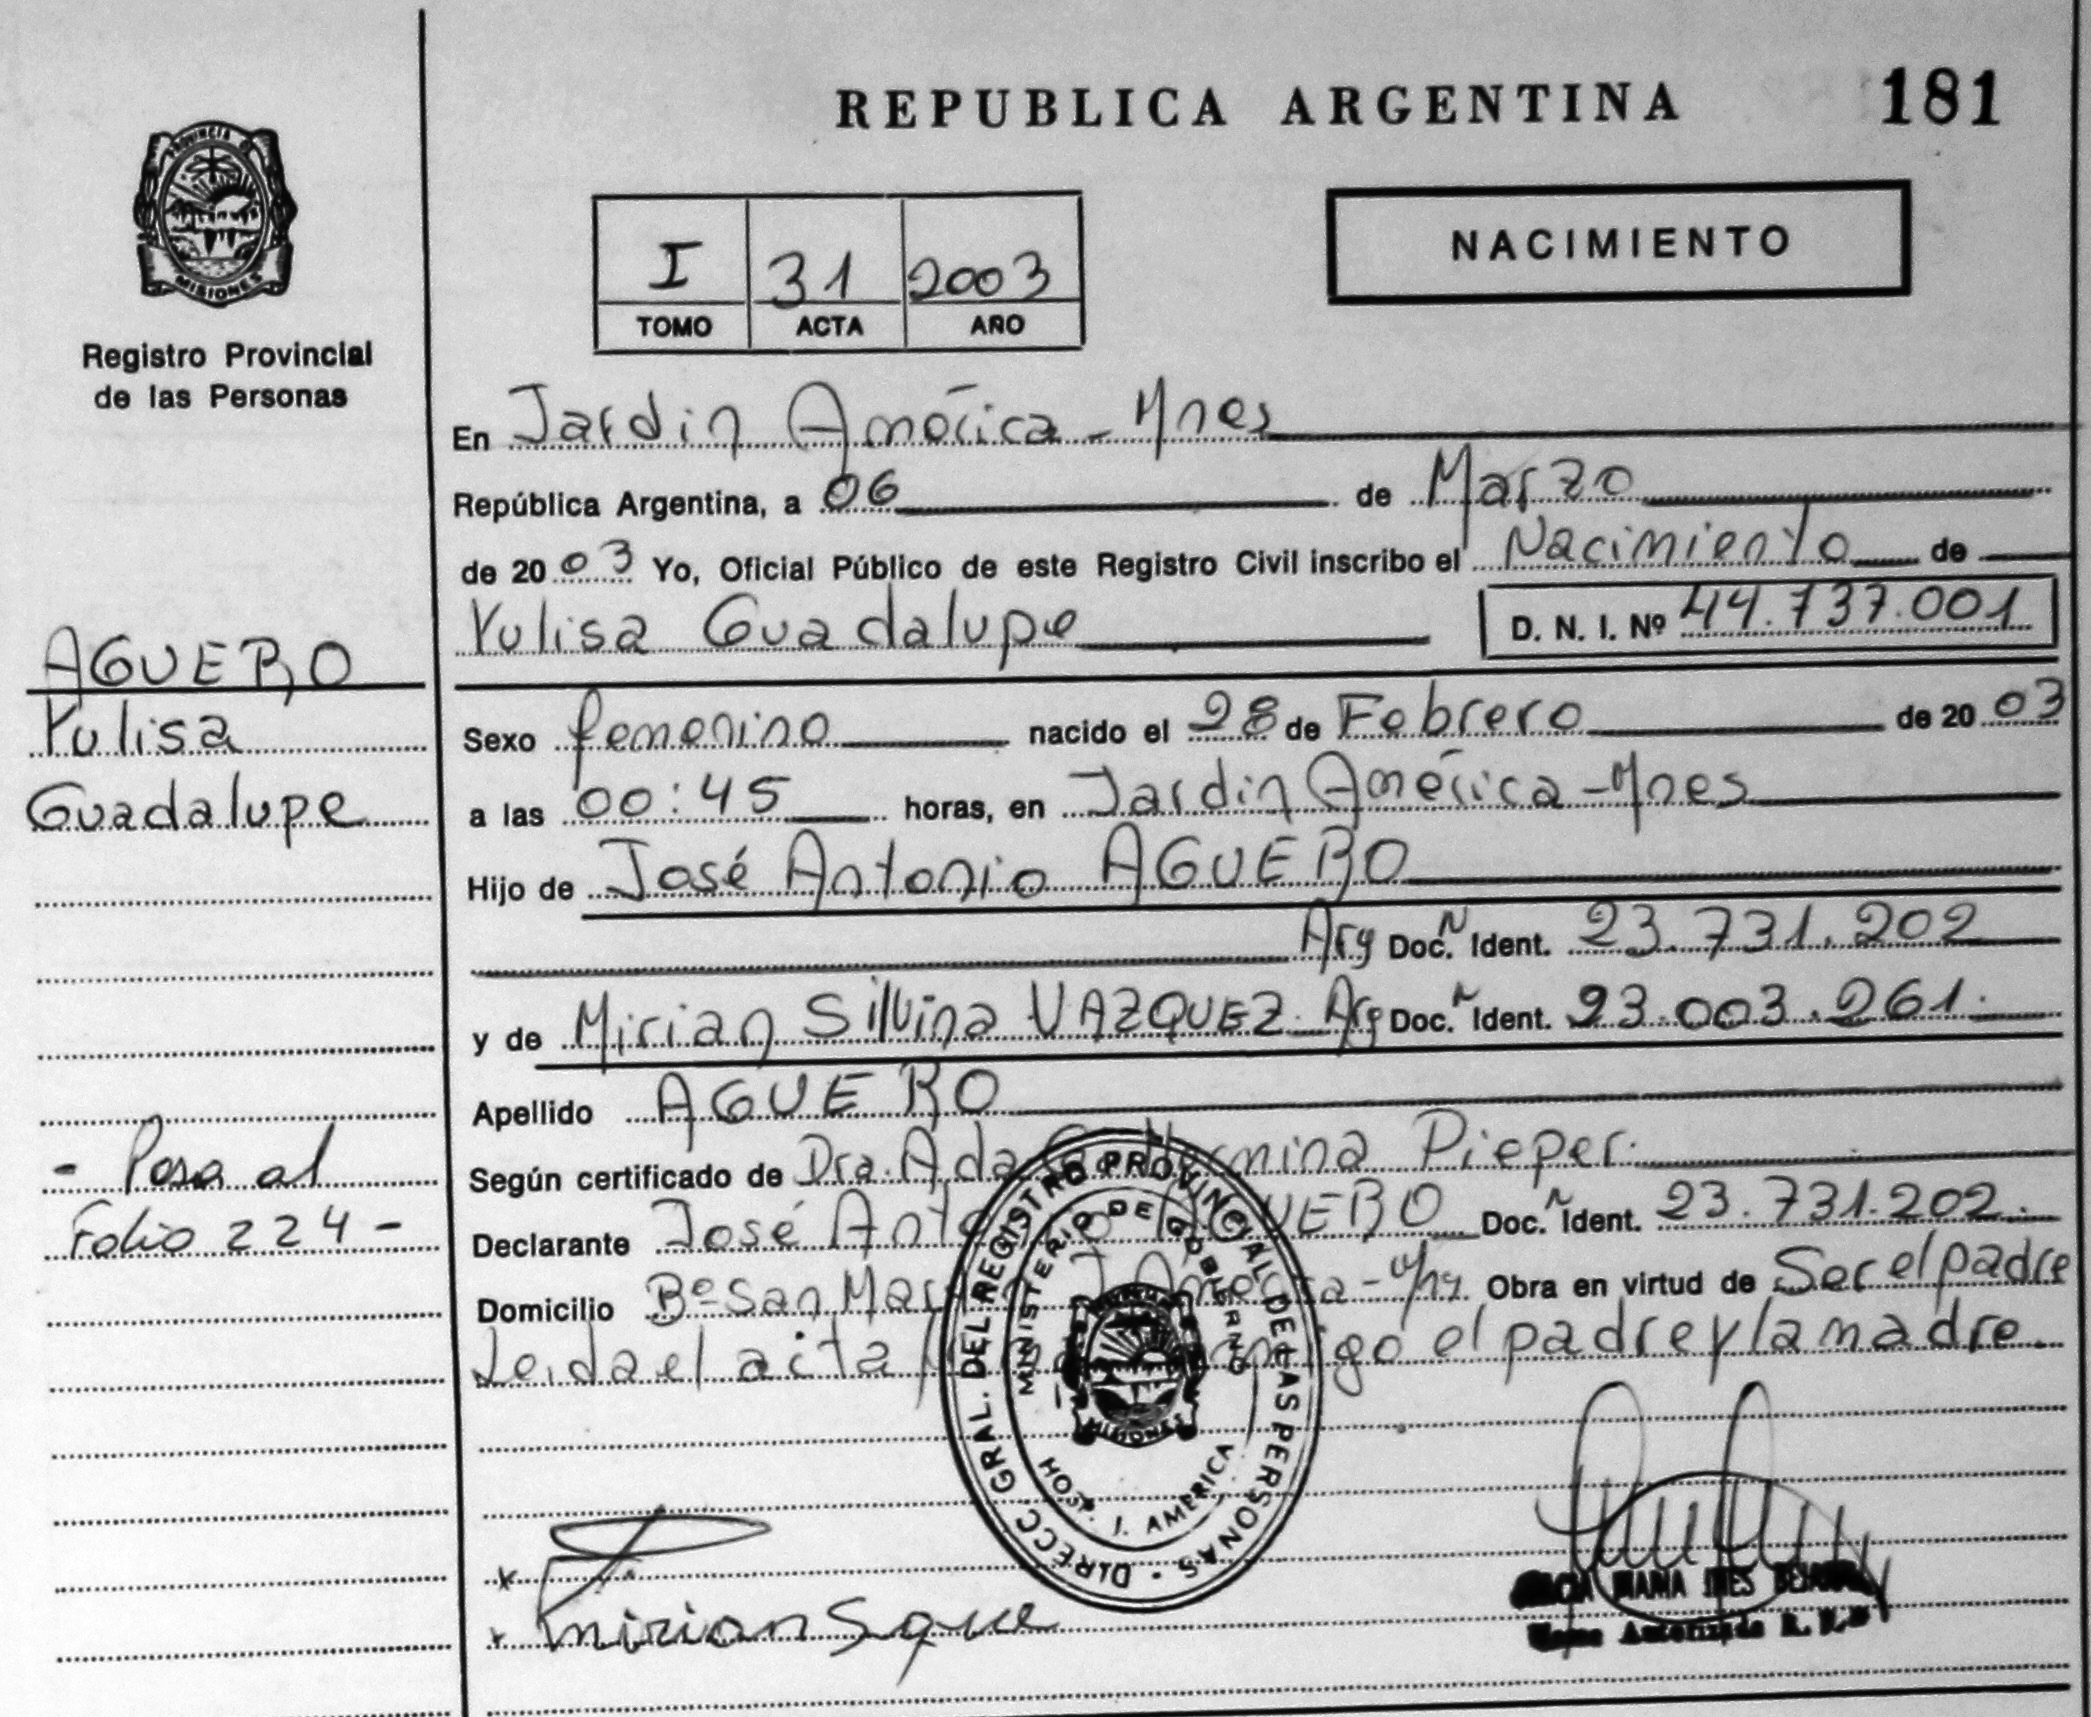 REPUBLICA ARGENTINA 181
PROVINCIA DE
MISIONES
Registro Provincial
de las Personas
I 31 2003
TOMO ACTA AÑO
NACIMIENTO
En Jardin América - Mnes
República Argentina, a 06 de Marzo
de 2003 Yo, Oficial Público de este Registro Civil inscribo el Nacimiento de
Yulisa Guadalupe D. N. I. Nº 44.737.001
AGUERO
Yulisa
Guadalupe
- Pasa al
Folio 224 -
Sexo femenino nacido el 28 de Febrero de 2003
a las 00:45 horas, en Jardin América - Mnes
Hijo de José Antonio AGUERO
Arg Doc. N Ident. 23.731.202
y de Mirian Silvina VAZQUEZ. Arg Doc. N Ident. 23.003.261.
Apellido AGUERO
Según certificado de Dra. Ada Pieper.
Declarante José Antonio AGUERO Doc. N Ident. 23.731.202.
Domicilio Bº San Martin J. América - Mns Obra en virtud de Ser el padre
Leida el acta el padre y la madre.
DIRECC. GRAL. DEL REGISTRO PROVINCIAL DE LAS PERSONAS
MINISTERIO DE GOBIERNO
MISIONES
HOSP. J. AMERICA
x
x mirian
MARIA INES
Autorizada